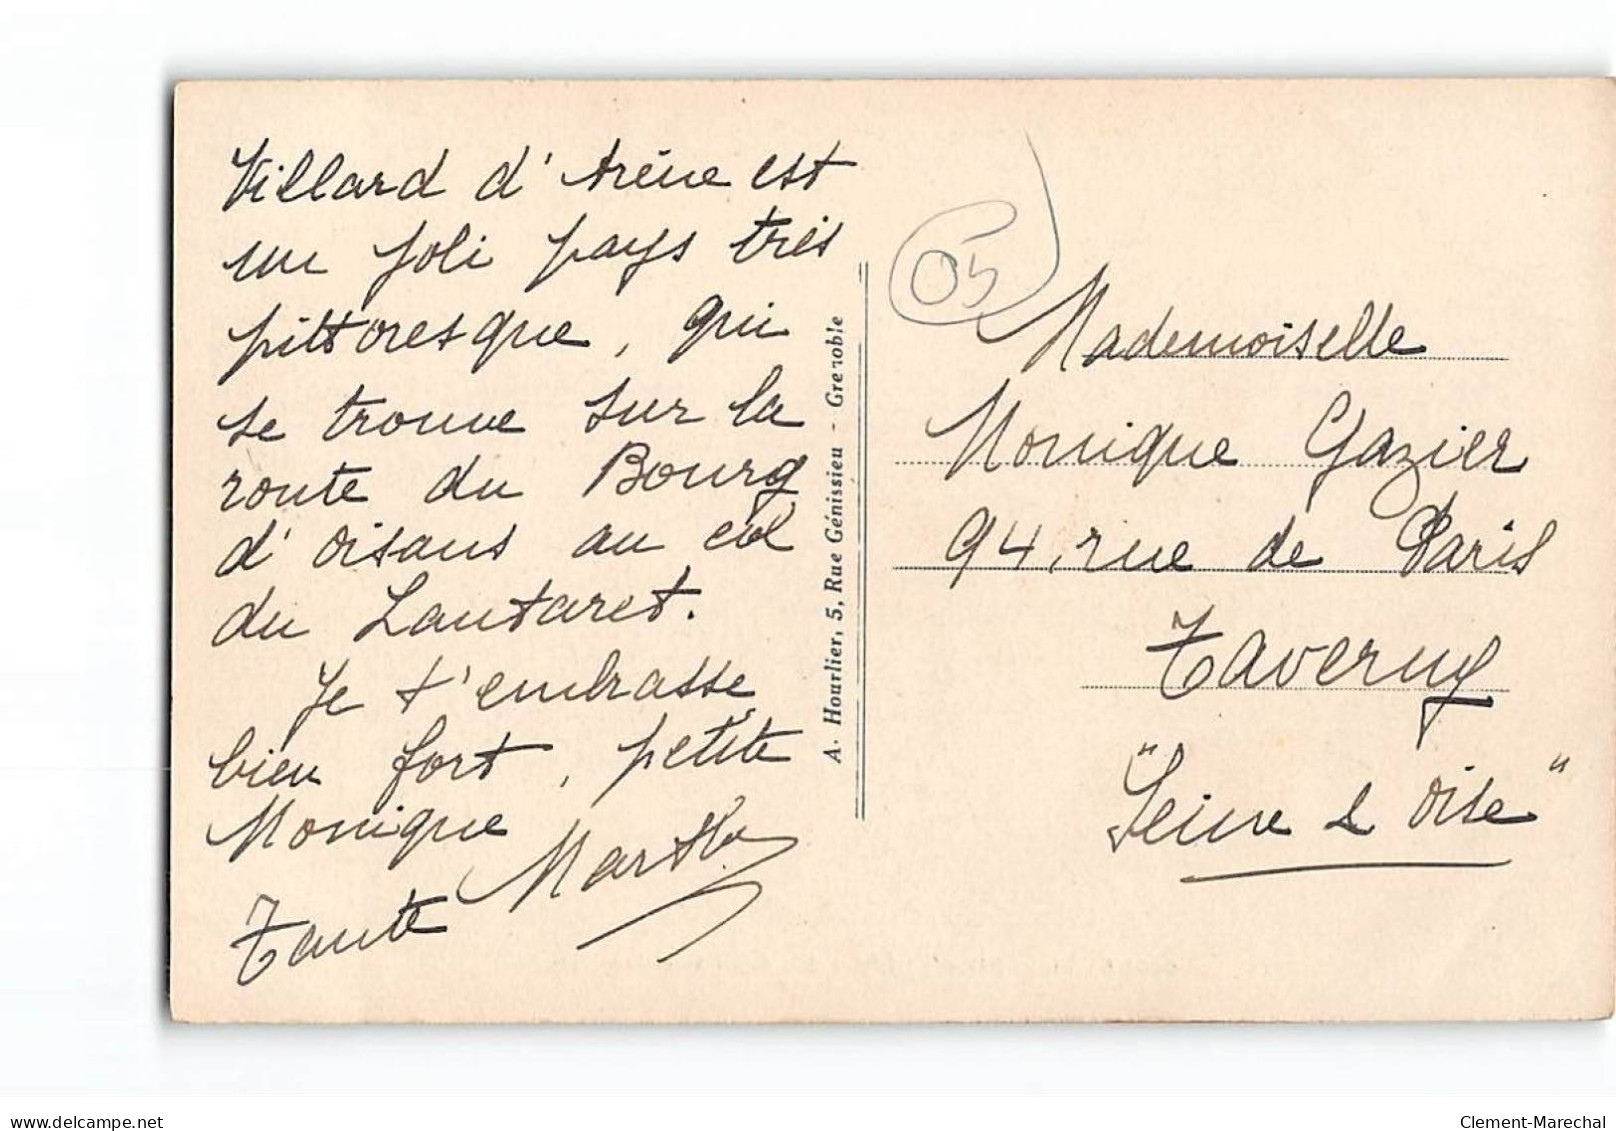 Villard d'Arène est
un joli pays très
pittoresque, qui
se trouve sur la
route du Bourg
d'oisans au col
du Lautaret.
Je t'embrasse
bien fort, petite
Monique
Tante Marthe
A. Hourlier, 5, Rue Génissieu - Grenoble
05
Mademoiselle
Monique Gazier
94, rue de Paris
Taverny
"Seine & Oise"
www.delcampe.net
Clement-Marechal